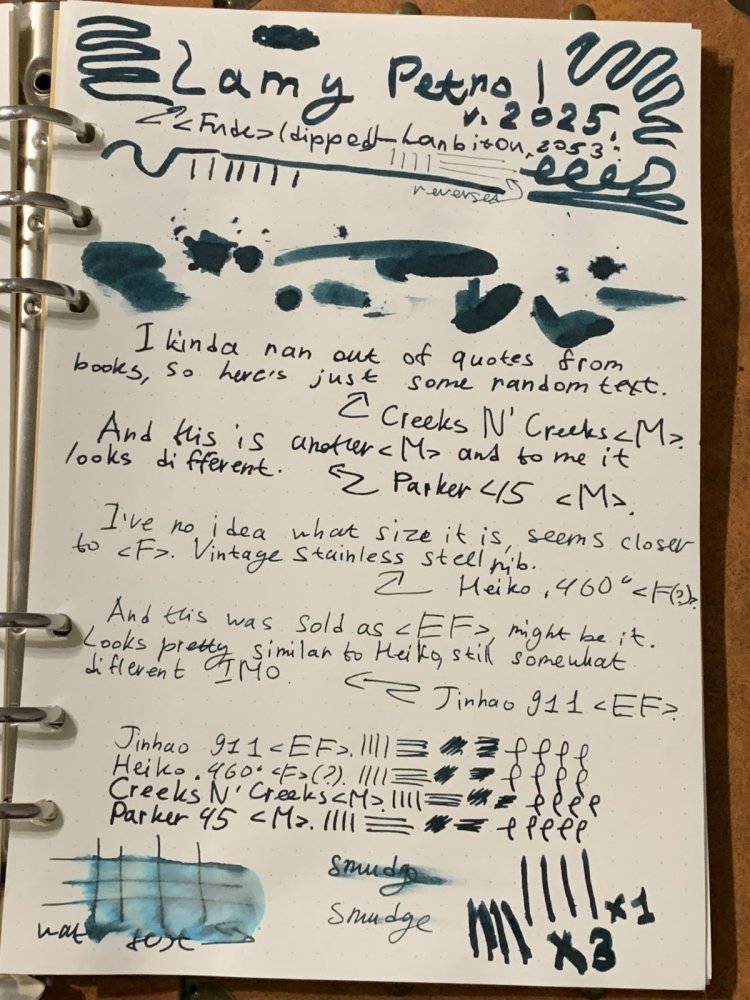 Lamy Petrol
v. 2025.
<Fude> (dipped) Lanbitou, 2053.
reversed
I kinda ran out of quotes from
books, so here's just some random text.
Creeks N' Creeks <M>.
And this is another <M> and to me it
looks different.
Parker 45 <M>.
I've no idea what size it is, seems closer
to <F>. Vintage stainless stell nib.
Heiko .460" <F(?)>.
And this was sold as <EF>, might be it.
Looks pretty similar to Heiko, still somewhat
different IMO.
Jinhao 911 <EF>.
Jinhao 911 <EF>.
Heiko .460" <F>(?).
Creeks N' Creeks <M>.
Parker 45 <M>.
Smudge
Smudge
water test
x1
x3